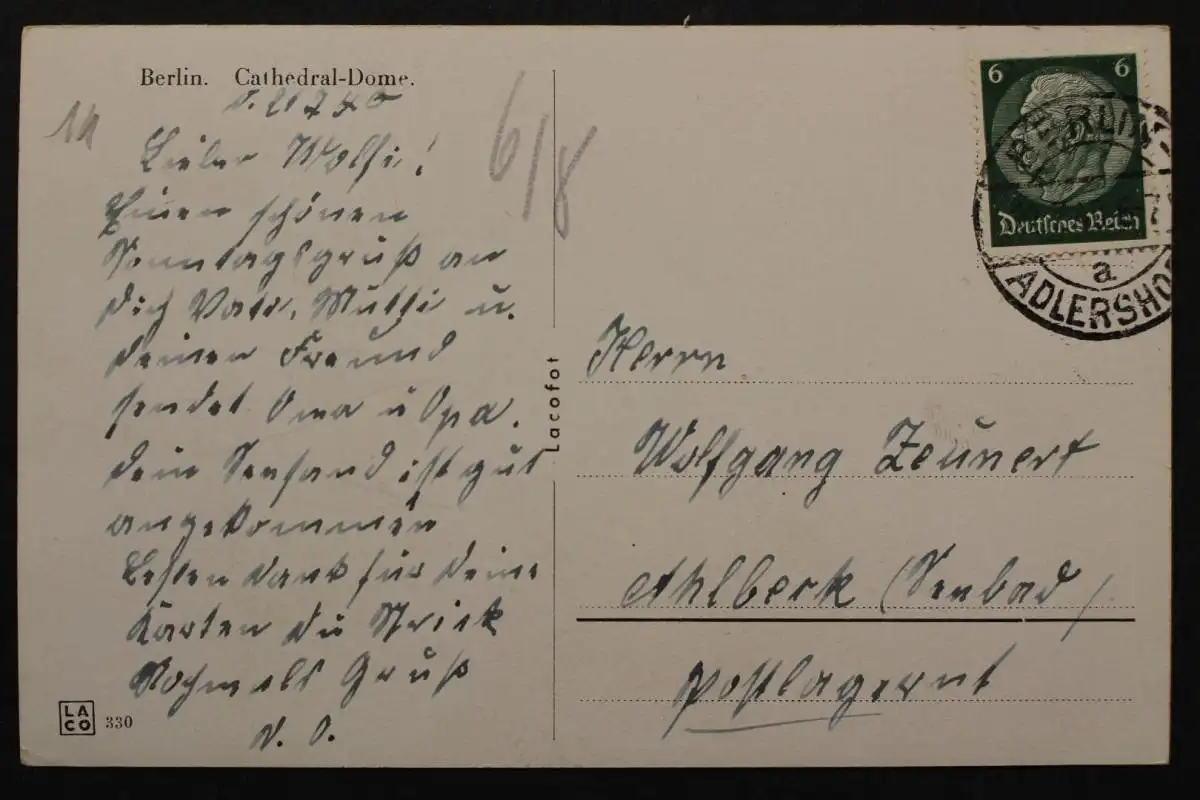 Berlin. Cathedral-Dome.
d. 21 7 40
Lieber Wolfi!
Einen schönen
Sonntagsgruß an
dich Vater, Mutti u.
deinen Freund
sendet Oma u Opa.
dein Seesand ist gut
angekommen
Besten dank für deine
Karten du Strick
Nochmals Gruß
d. O.
LACO 330
6/8
Lacofot
6 6
Deutsches Reich
BERLIN
a
ADLERSHOF
Herrn
Wolfgang Zeunert
Ahlbeck (Seebad)
postlagernt